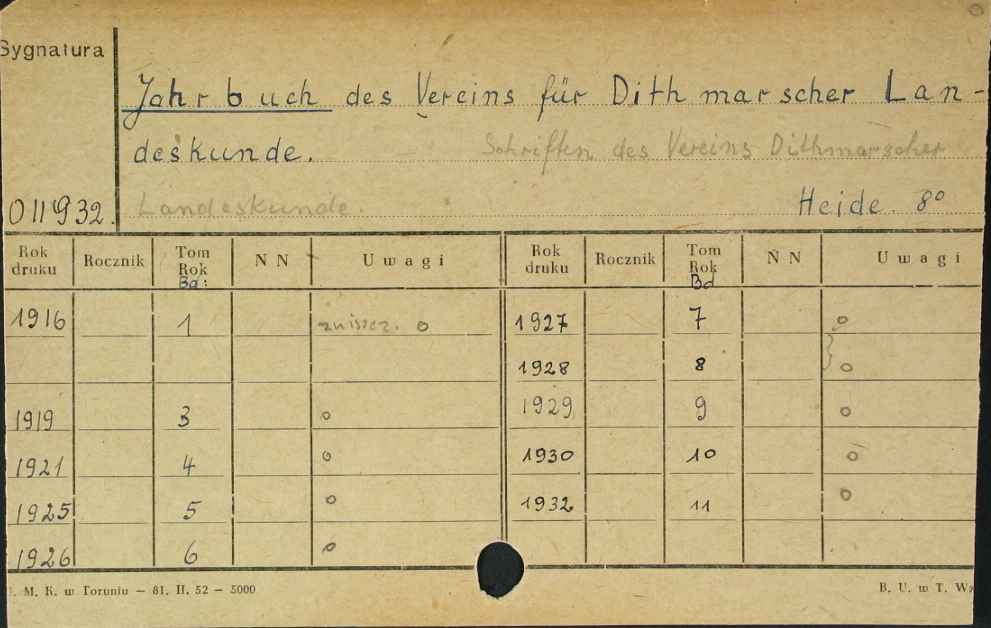 Sygnatura
Jahrbuch des Vereins für Dithmarscher Lan-
deskunde. Schriften des Vereins Dithmarscher
011932. Landeskunde. Heide. 8°
Rok druku Rocznik Tom Rok Bd: N N Uwagi Rok druku Rocznik Tom Rok Bd N N Uwagi
1916 1 zniszcz. o 1927 7 o
1928 8 o
1919 3 o 1929 9 o
1921 4 o 1930 10 o
1925 5 o 1932 11 o
1926 6 o
U. M. K. w Toruniu — 81. II. 52 — 5000 B. U. w T.